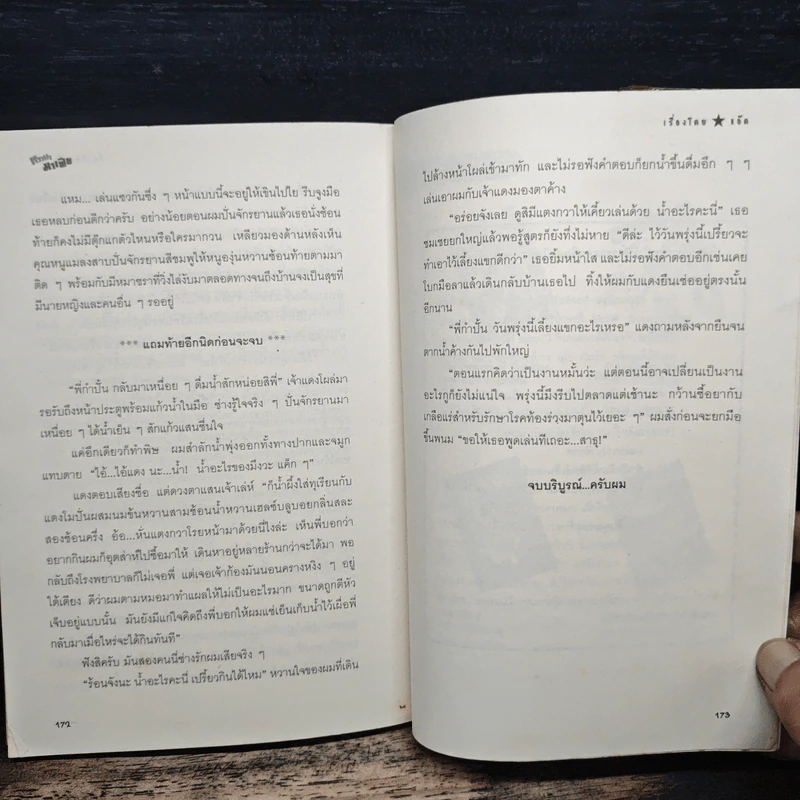 แหม... เล่นแซวกันซึ่ง ๆ หน้าแบบนี้จะอยู่ให้เขินไปใย รีบจูงมือ
เธอหลบก่อนดีกว่าครับ อย่างน้อยตอนผมปั่นจักรยานแล้วเธอนั่งซ้อน
ท้ายก็คงไม่มีตุ๊กแกตัวไหนหรือใครมากวน เหลียวมองด้านหลังเห็น
คุณหนูแมลงสาบปั่นจักรยานสีชมพูให้หนูองุ่นหวานซ้อนท้ายตามมา
ติด ๆ พร้อมกับมีหมาซาราที่วิ่งไล่งับมาตลอดทางจนถึงบ้านจงเป็นสุขที่
มีนายหญิงและคนอื่น ๆ รออยู่
*** แถมท้ายอีกนิดก่อนจะจบ ***
"พี่กำปั้น กลับมาเหนื่อย ๆ ดื่มน้ำสักหน่อยสิพี่" เจ้าแดงโผล่มา
รอรับถึงหน้าประตูพร้อมแก้วน้ำในมือ ช่างรู้ใจจริง ๆ ปั่นจักรยานมา
เหนื่อย ๆ ได้น้ำเย็น ๆ สักแก้วแสนชื่นใจ
แค่อึกเดียวก็ทำพิษ ผมสำลักน้ำพุ่งออกทั้งทางปากและจมูก
แทบตาย "ไอ้...ไอ้แดง นะ...น้ำ! น้ำอะไรของมึงวะ แค็ก ๆ"
แดงตอบเสียงซื่อ แต่ดวงตาแสนเจ้าเล่ห์ "ก็น้ำผึ้งใส่ทุเรียนกับ
แตงโมปั่นผสมนมข้นหวานสามช้อนน้ำหวานเฮลซ์บลูบอยกลิ่นสละ
สองช้อนครึ่ง อ้อ...หั่นแตงกวาโรยหน้ามาด้วยนี่ไงล่ะ เห็นพี่บอกว่า
อยากกินผมก็อุตส่าห์ไปซื้อมาให้ เดินหาอยู่หลายร้านกว่าจะได้มา พอ
กลับถึงโรงพยาบาลก็ไม่เจอพี่ แต่เจอเจ้าก้องมันนอนครางหงิง ๆ อยู่
ใต้เตียง ดีว่าผมตามหมอมาทำแผลให้ไม่เป็นอะไรมาก ขนาดถูกตีหัว
เจ็บอยู่แบบนั้น มันยังมีแก่ใจคิดถึงพี่บอกให้ผมแช่เย็นเก็บน้ำไว้เผื่อพี่
กลับมาเมื่อไหร่จะได้กินทันที"
ฟังสิครับ มันสองคนนี่ช่างรักผมเสียจริง ๆ
"ร้อนจังนะ น้ำอะไรคะนี่ เปรี้ยวกินได้ไหม" หวานใจของผมที่เดิน
172
เรื่องโดย ★ แอ๊ด
ไปล้างหน้าโผล่เข้ามาทัก และไม่รอฟังคำตอบก็ยกน้ำขึ้นดื่มอึก ๆ ๆ
เล่นเอาผมกับเจ้าแดงมองตาค้าง
"อร่อยจังเลย ดูสิมีแตงกวาให้เคี้ยวเล่นด้วย น้ำอะไรคะนี่" เธอ
ชมเชยยกใหญ่แล้วพอรู้สูตรก็ยังที่ไม่หาย "ดีล่ะ ไว้วันพรุ่งนี้เปรี้ยวจะ
ทำเอาไว้เลี้ยงแขกดีกว่า" เธอยิ้มหน้าใส และไม่รอฟังคำตอบอีกเช่นเคย
โบกมือลาแล้วเดินกลับบ้านเธอไป ทิ้งให้ผมกับแดงยืนเซ่ออยู่ตรงนั้น
อีกนาน
"พี่กำปั้น วันพรุ่งนี้เลี้ยงแขกอะไรเหรอ" แดงถามหลังจากยืนจน
ตากน้ำค้างกันไปพักใหญ่
"ตอนแรกคิดว่าเป็นงานหมั้นว่ะ แต่ตอนนี้อาจเปลี่ยนเป็นงาน
อะไรกูก็ยังไม่แน่ใจ พรุ่งนี้มึงรีบไปตลาดแต่เช้านะ กว้านซื้อยากับ
เกลือแร่สำหรับรักษาโรคท้องร่วงมาตุนไว้เยอะ ๆ" ผมสั่งก่อนจะยกมือ
ขึ้นพนม "ขอให้เธอพูดเล่นทีเถอะ...สาธุ!"
จบบริบูรณ์...ครับผม
173